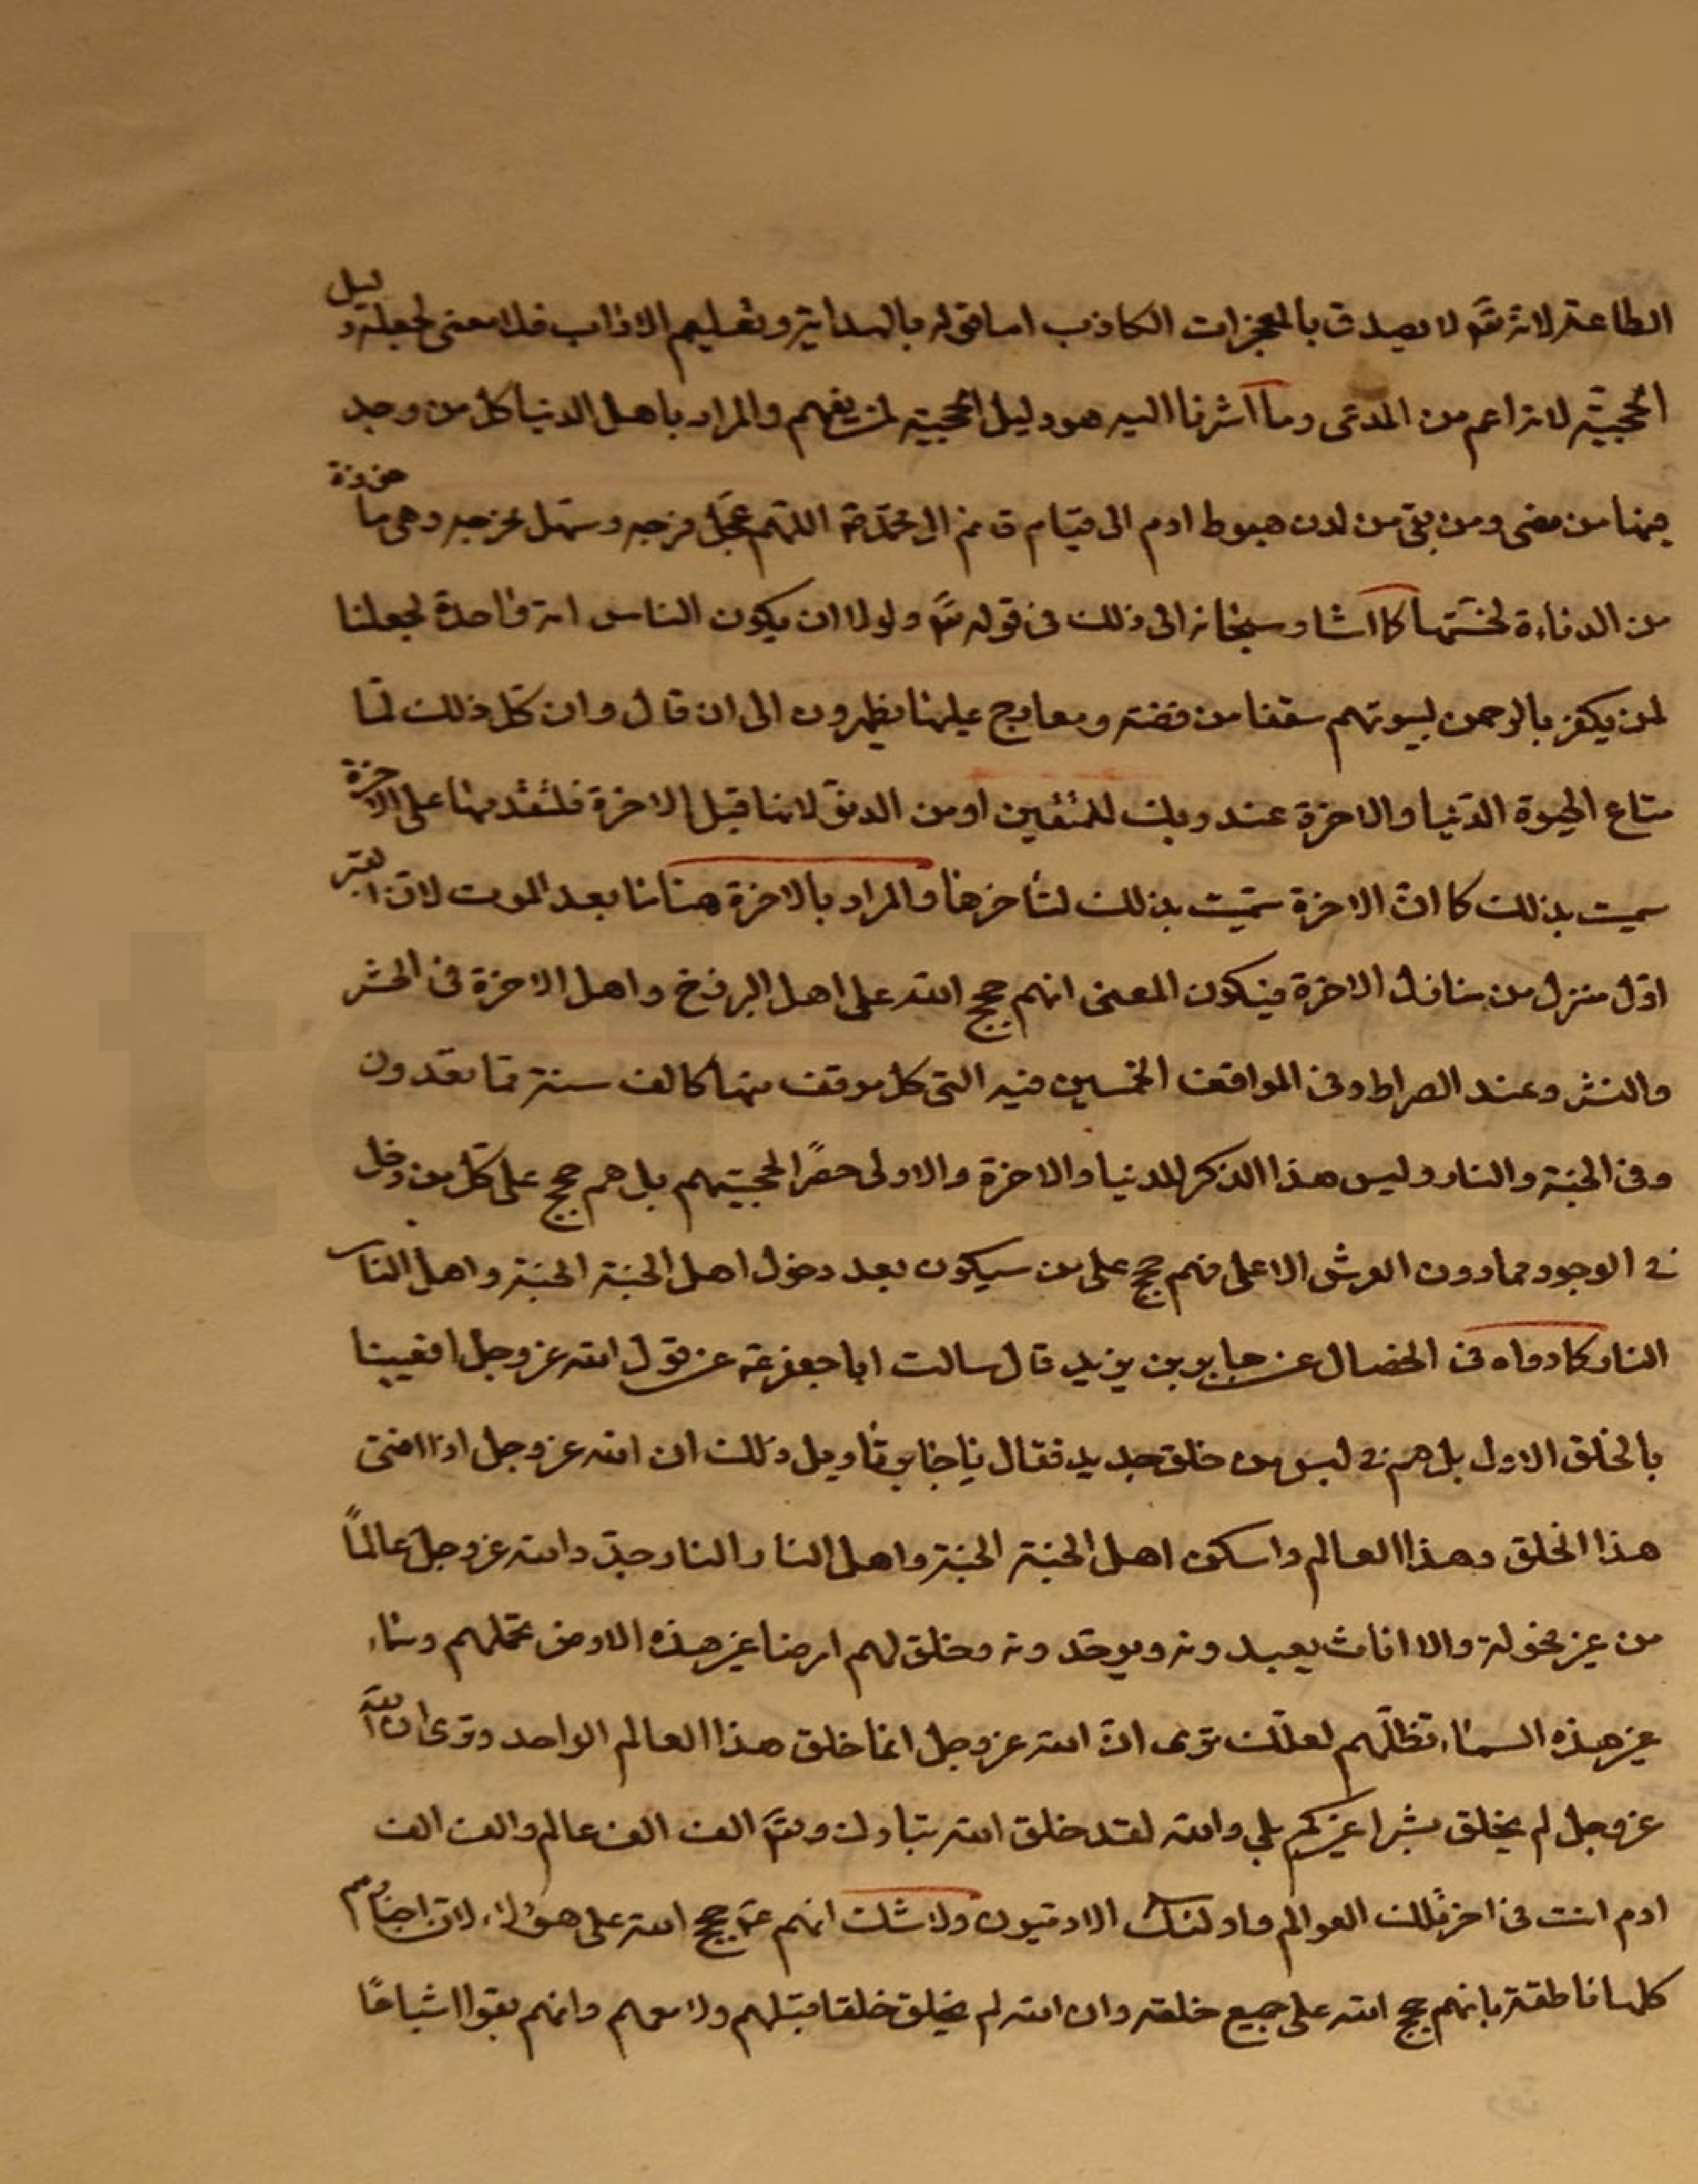 الطاعة لانه تعّ لا يصدق بالمعجزات الكاذب اما قوله بالهداية وتعليم الاداب فلا معنى لجعله دليل
الحجيّة لانه اعم من المدعى وما اشرنا اليه هو دليل الحجية لمن يفهم والمراد باهل الدنيا كل من وجد
فيها من مضى ومن بقى من لدن هبوط ادم الى قيام اللهم عجّل فرجه وسهّل مخرجه وهى ماخوذة
من الدناءة لخسّتها كما اشار سبحانه الى ذلك فى قوله تعّ ولولا ان يكون الناس امة واحدة لجعلنا
لمن يكفر بالرحمن لبيوتهم سقفا من فضة ومعارج عليها يظهرون الى ان قال وان كل ذلك لمّا
متاع الحيوة الدّنيا والاخرة عند ربك للمتّقين او من الدنوّ لانها قبل الاخرة فلتقدمها على الاخرة
سميت بذلك كما انّ الاخرة سمّيت بذلك لتأخرها والمراد بالاخرة هنا ما بعد الموت لانّ القبر
اوّل منزل من منازل الاخرة فيكون المعنى انهم حجج الله على اهل البرزخ واهل الاخرة فى الحشر
والنشر وعند الصراط وفى المواقف الخمسين فيه التى كل موقف منها كالف سنة ممّا تعدون
وفى الجنة والنار وليس هذا الذكر للدنيا والاخرة والاولى حصرًا لحجيتهم بل هم حجج على كل من دخل
فى الوجود مما دون العرش الاعلى فهم حجج على من سيكون بعد دخول اهل الجنة الجنة واهل النار
النار كما رواه فى الخصال عن جابر بن يزيد قال سالت ابا جعفر عّ عن قول الله عز وجل افعيينا
بالخلق الاول بل هم فى لبس من خلق جديد فقال يا جابر تأويل ذلك ان الله عز وجل اذا افنى
هذا الخلق وهذا العالم واسكن اهل الجنة الجنة واهل النار النار جدّد الله عز وجل عالمًا
من غير فحولة والا اناث يعبدونه ويوحّدونه وخلق لهم ارضا غير هذه الارض تحملهم وسماء
غير هذه السماء تظلّهم لعلّك ترى انّ الله عز وجل انما خلق هذا العالم الواحد وترى ان الله
عز وجل لم يخلق بشرا غيركم بلى والله لقد خلق الله تبارك وتعّ الف الف عالم والف الف
ادم انت فى اخر تلك العوالم واولئك الادميون ولا شك انهم عّ حجج الله على هؤلاء لانّ اخبارهم
كلها ناطقة بانهم حجج الله على جميع خلقه وان الله لم يخلق خلقا قبلهم ولا معهم وانهم بقوا اشباحًا